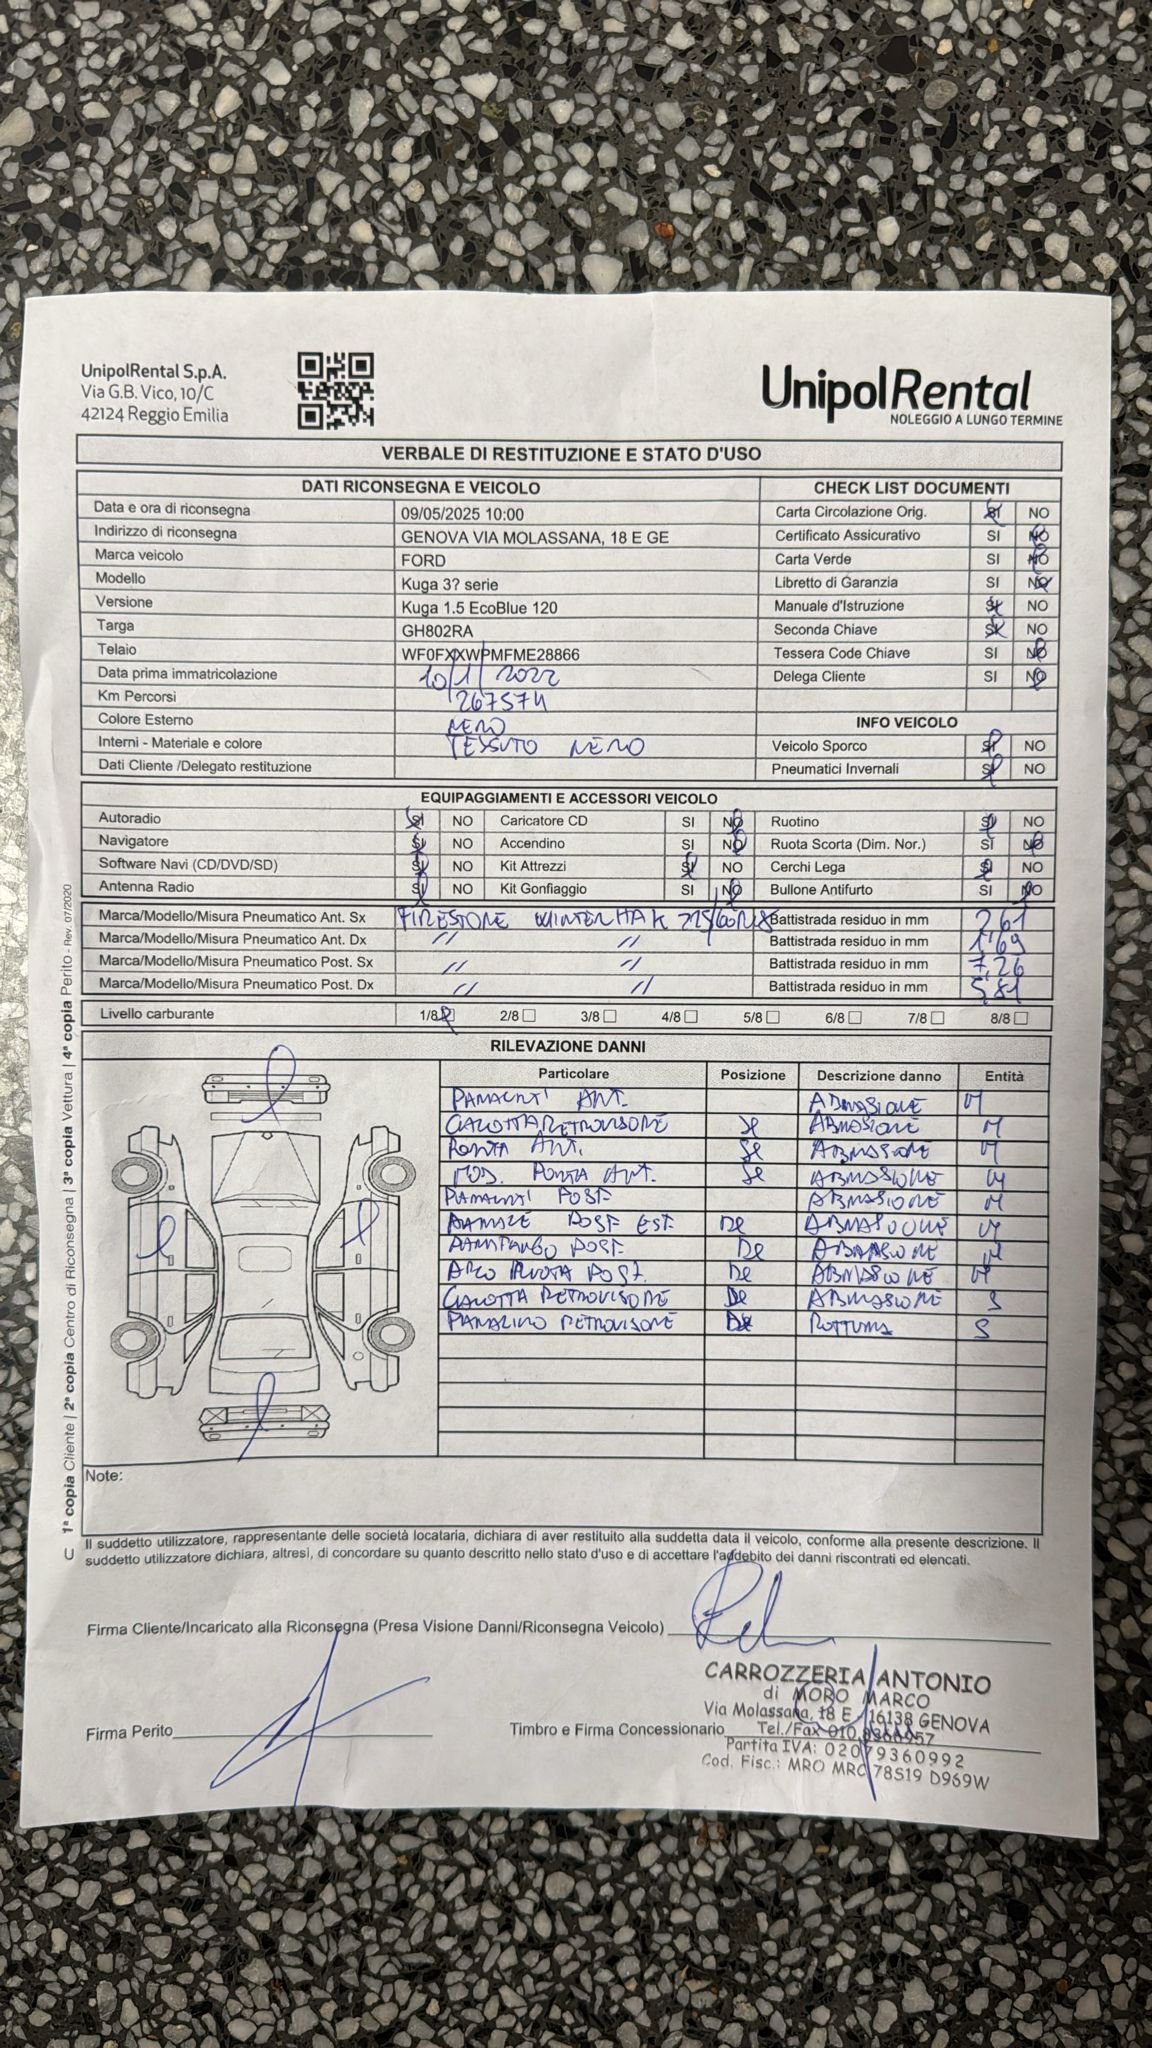 UnipolRental S.p.A.
Via G.B. Vico, 10/C
42124 Reggio Emilia
UnipolRental
NOLEGGIO A LUNGO TERMINE
VERBALE DI RESTITUZIONE E STATO D'USO
DATI RICONSEGNA E VEICOLO CHECK LIST DOCUMENTI
Data e ora di riconsegna 09/05/2025 10:00 Carta Circolazione Orig. SI NO
Indirizzo di riconsegna GENOVA VIA MOLASSANA, 18 E GE Certificato Assicurativo SI NO
Marca veicolo FORD Carta Verde SI NO
Modello Kuga 3? serie Libretto di Garanzia SI NO
Versione Kuga 1.5 EcoBlue 120 Manuale d'Istruzione SI NO
Targa GH802RA Seconda Chiave SI NO
Telaio WF0FXXWPMFME28866 Tessera Code Chiave SI NO
Data prima immatricolazione 10/1/2022 Delega Cliente SI NO
Km Percorsi 267574
Colore Esterno NERO INFO VEICOLO
Interni - Materiale e colore TESSUTO NERO Veicolo Sporco SI NO
Dati Cliente /Delegato restituzione Pneumatici Invernali SI NO
EQUIPAGGIAMENTI E ACCESSORI VEICOLO
Autoradio SI NO Caricatore CD SI NO Ruotino SI NO
Navigatore SI NO Accendino SI NO Ruota Scorta (Dim. Nor.) SI NO
Software Navi (CD/DVD/SD) SI NO Kit Attrezzi SI NO Cerchi Lega SI NO
Antenna Radio SI NO Kit Gonfiaggio SI NO Bullone Antifurto SI NO
Marca/Modello/Misura Pneumatico Ant. Sx FIRESTONE WINTERHAK 225/60R18 Battistrada residuo in mm 2,61
Marca/Modello/Misura Pneumatico Ant. Dx // // Battistrada residuo in mm 1,69
Marca/Modello/Misura Pneumatico Post. Sx // // Battistrada residuo in mm 7,26
Marca/Modello/Misura Pneumatico Post. Dx // // Battistrada residuo in mm 5,81
Livello carburante 1/8 2/8 3/8 4/8 5/8 6/8 7/8 8/8
RILEVAZIONE DANNI
Particolare Posizione Descrizione danno Entità
PARAURTI ANT. ABRASIONE M
CALOTTA RETROVISORE Sx ABRASIONE M
PORTA ANT. Sx ABRASIONE M
MOD. PORTA ANT. Sx ABRASIONE M
PARAURTI POST ABRASIONE M
POST EST. Dx ABRASIONE M
PARAFANGO POST. Dx ABRASIONE M
ARCO RUOTA POST. Dx ABRASIONE M
CALOTTA RETROVISORE Dx ABRASIONE S
FANALINO RETROVISORE Dx ROTTURA S
Note:
Il suddetto utilizzatore, rappresentante delle società locataria, dichiara di aver restituito alla suddetta data il veicolo, conforme alla presente descrizione. Il
suddetto utilizzatore dichiara, altresì, di concordare su quanto descritto nello stato d'uso e di accettare l'addebito dei danni riscontrati ed elencati.
Firma Cliente/Incaricato alla Riconsegna (Presa Visione Danni/Riconsegna Veicolo)
CARROZZERIA ANTONIO
di MORO MARCO
Via Molassana, 18 E 16138 GENOVA
Firma Perito Timbro e Firma Concessionario Tel./Fax 010.8360957
Partita IVA: 02079360992
Cod. Fisc.: MRO MRC 78S19 D969W
1ª copia Cliente | 2ª copia Centro di Riconsegna | 3ª copia Vettura | 4ª copia Perito - Rev. 07/2020